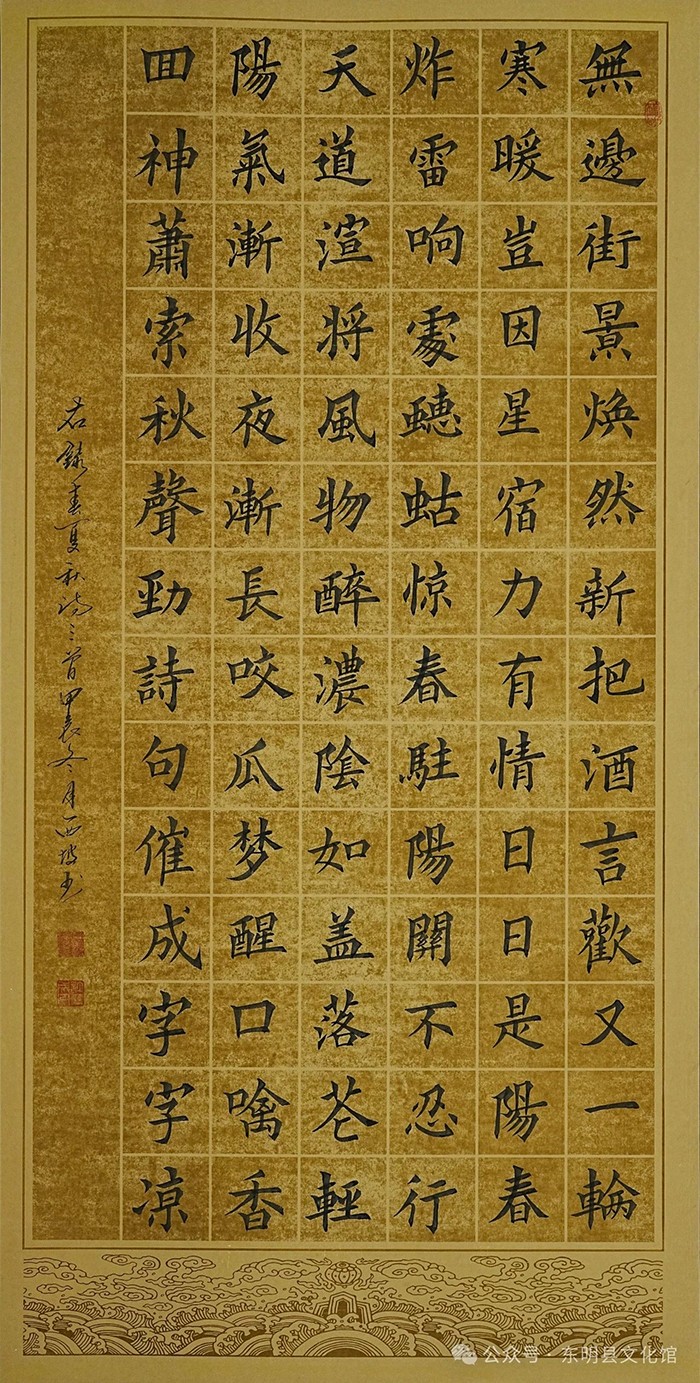 無邊街景焕然新把酒言歡又一輪
寒暖豈因星宿力有情日日是陽春
炸雷响處蟪蛄惊春駐陽關不忍行
天道渲将風物醉濃陰如盖落花輕
陽氣漸收夜漸長咬瓜梦醒口噙香
囬神蕭索秋聲勁詩句催成字字凉
右録春夏秋詩三首甲辰冬月西坡书
公众号 · 东明县文化馆